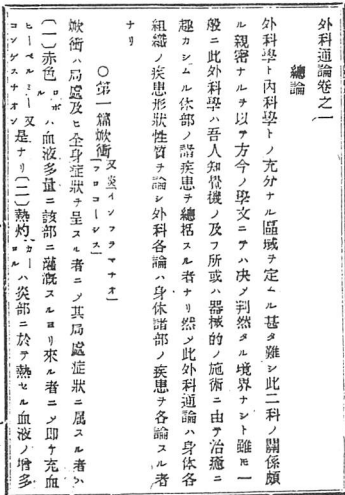 外科通論卷之一
總論
外科學ト內科學トノ充分ナル區域ヲ定ムル甚タ難シ此二科ノ關係頗
ル親密ナルヲ以テ方今ノ學文ニテハ决シテ判然タル境界ナシト雖𪜈一
般ニ此外科學ハ吾人知覺機ノ及フ所或ハ器械的ノ施術ニ由テ治癒ニ
趣カシムル体部ノ諸疾患ヲ總括スル者ナリ然シテ此外科通論ハ身体各
組織ノ疾患形狀性質ヲ論シ外科各論ハ身体諸部ノ疾患ヲ各論スル者
ナリ
○第一篇焮衝 又炎[インフラマチオ][フロゴーシス]
焮衝ハ局處及ヒ全身症狀ヲ呈スル者ニシテ其局處症狀ニ属スル者ハ
(一)赤色 ルーボル ハ血液多量ニ該部ニ灌漑スルヨリ來ル者ニシテ即チ充血
ヒーペレミー又コンゲスチオン 是ナリ(二)熱灼 カロール ハ炎部ニ於テ熱セル血液ノ增多